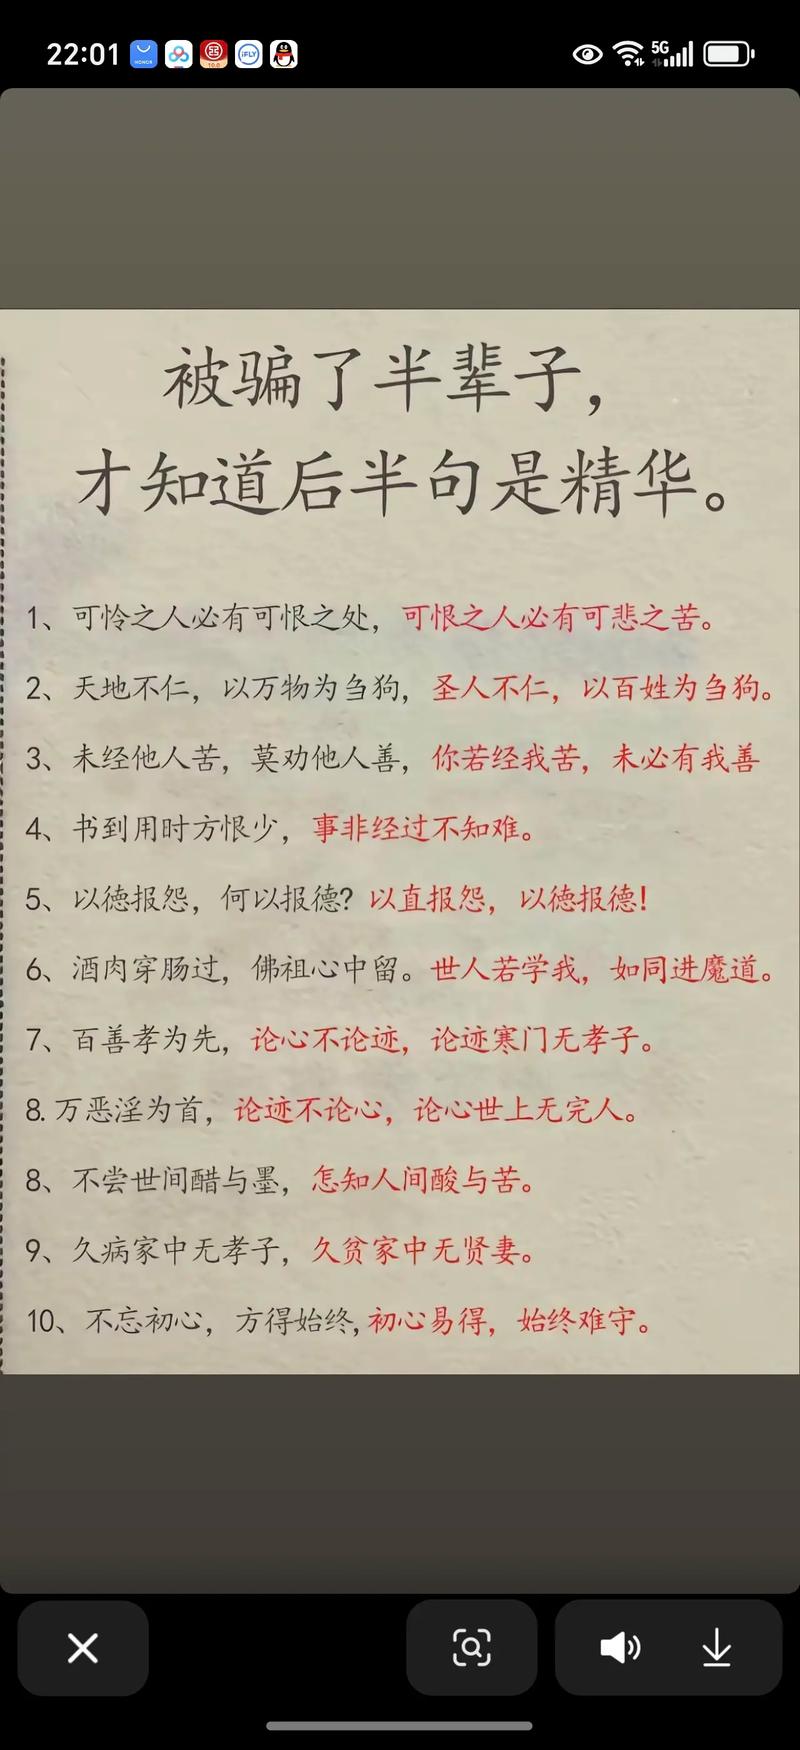 22:01
HONOR
10.0
iFLY
5G
被骗了半辈子，
才知道后半句是精华。
1、可怜之人必有可恨之处，可恨之人必有可悲之苦。
2、天地不仁，以万物为刍狗，圣人不仁，以百姓为刍狗。
3、未经他人苦，莫劝他人善，你若经我苦，未必有我善
4、书到用时方恨少，事非经过不知难。
5、以德报怨，何以报德？以直报怨，以德报德！
6、酒肉穿肠过，佛祖心中留。世人若学我，如同进魔道。
7、百善孝为先，论心不论迹，论迹寒门无孝子。
8. 万恶淫为首，论迹不论心，论心世上无完人。
8、不尝世间醋与墨，怎知人间酸与苦。
9、久病家中无孝子，久贫家中无贤妻。
10、不忘初心，方得始终,初心易得，始终难守。